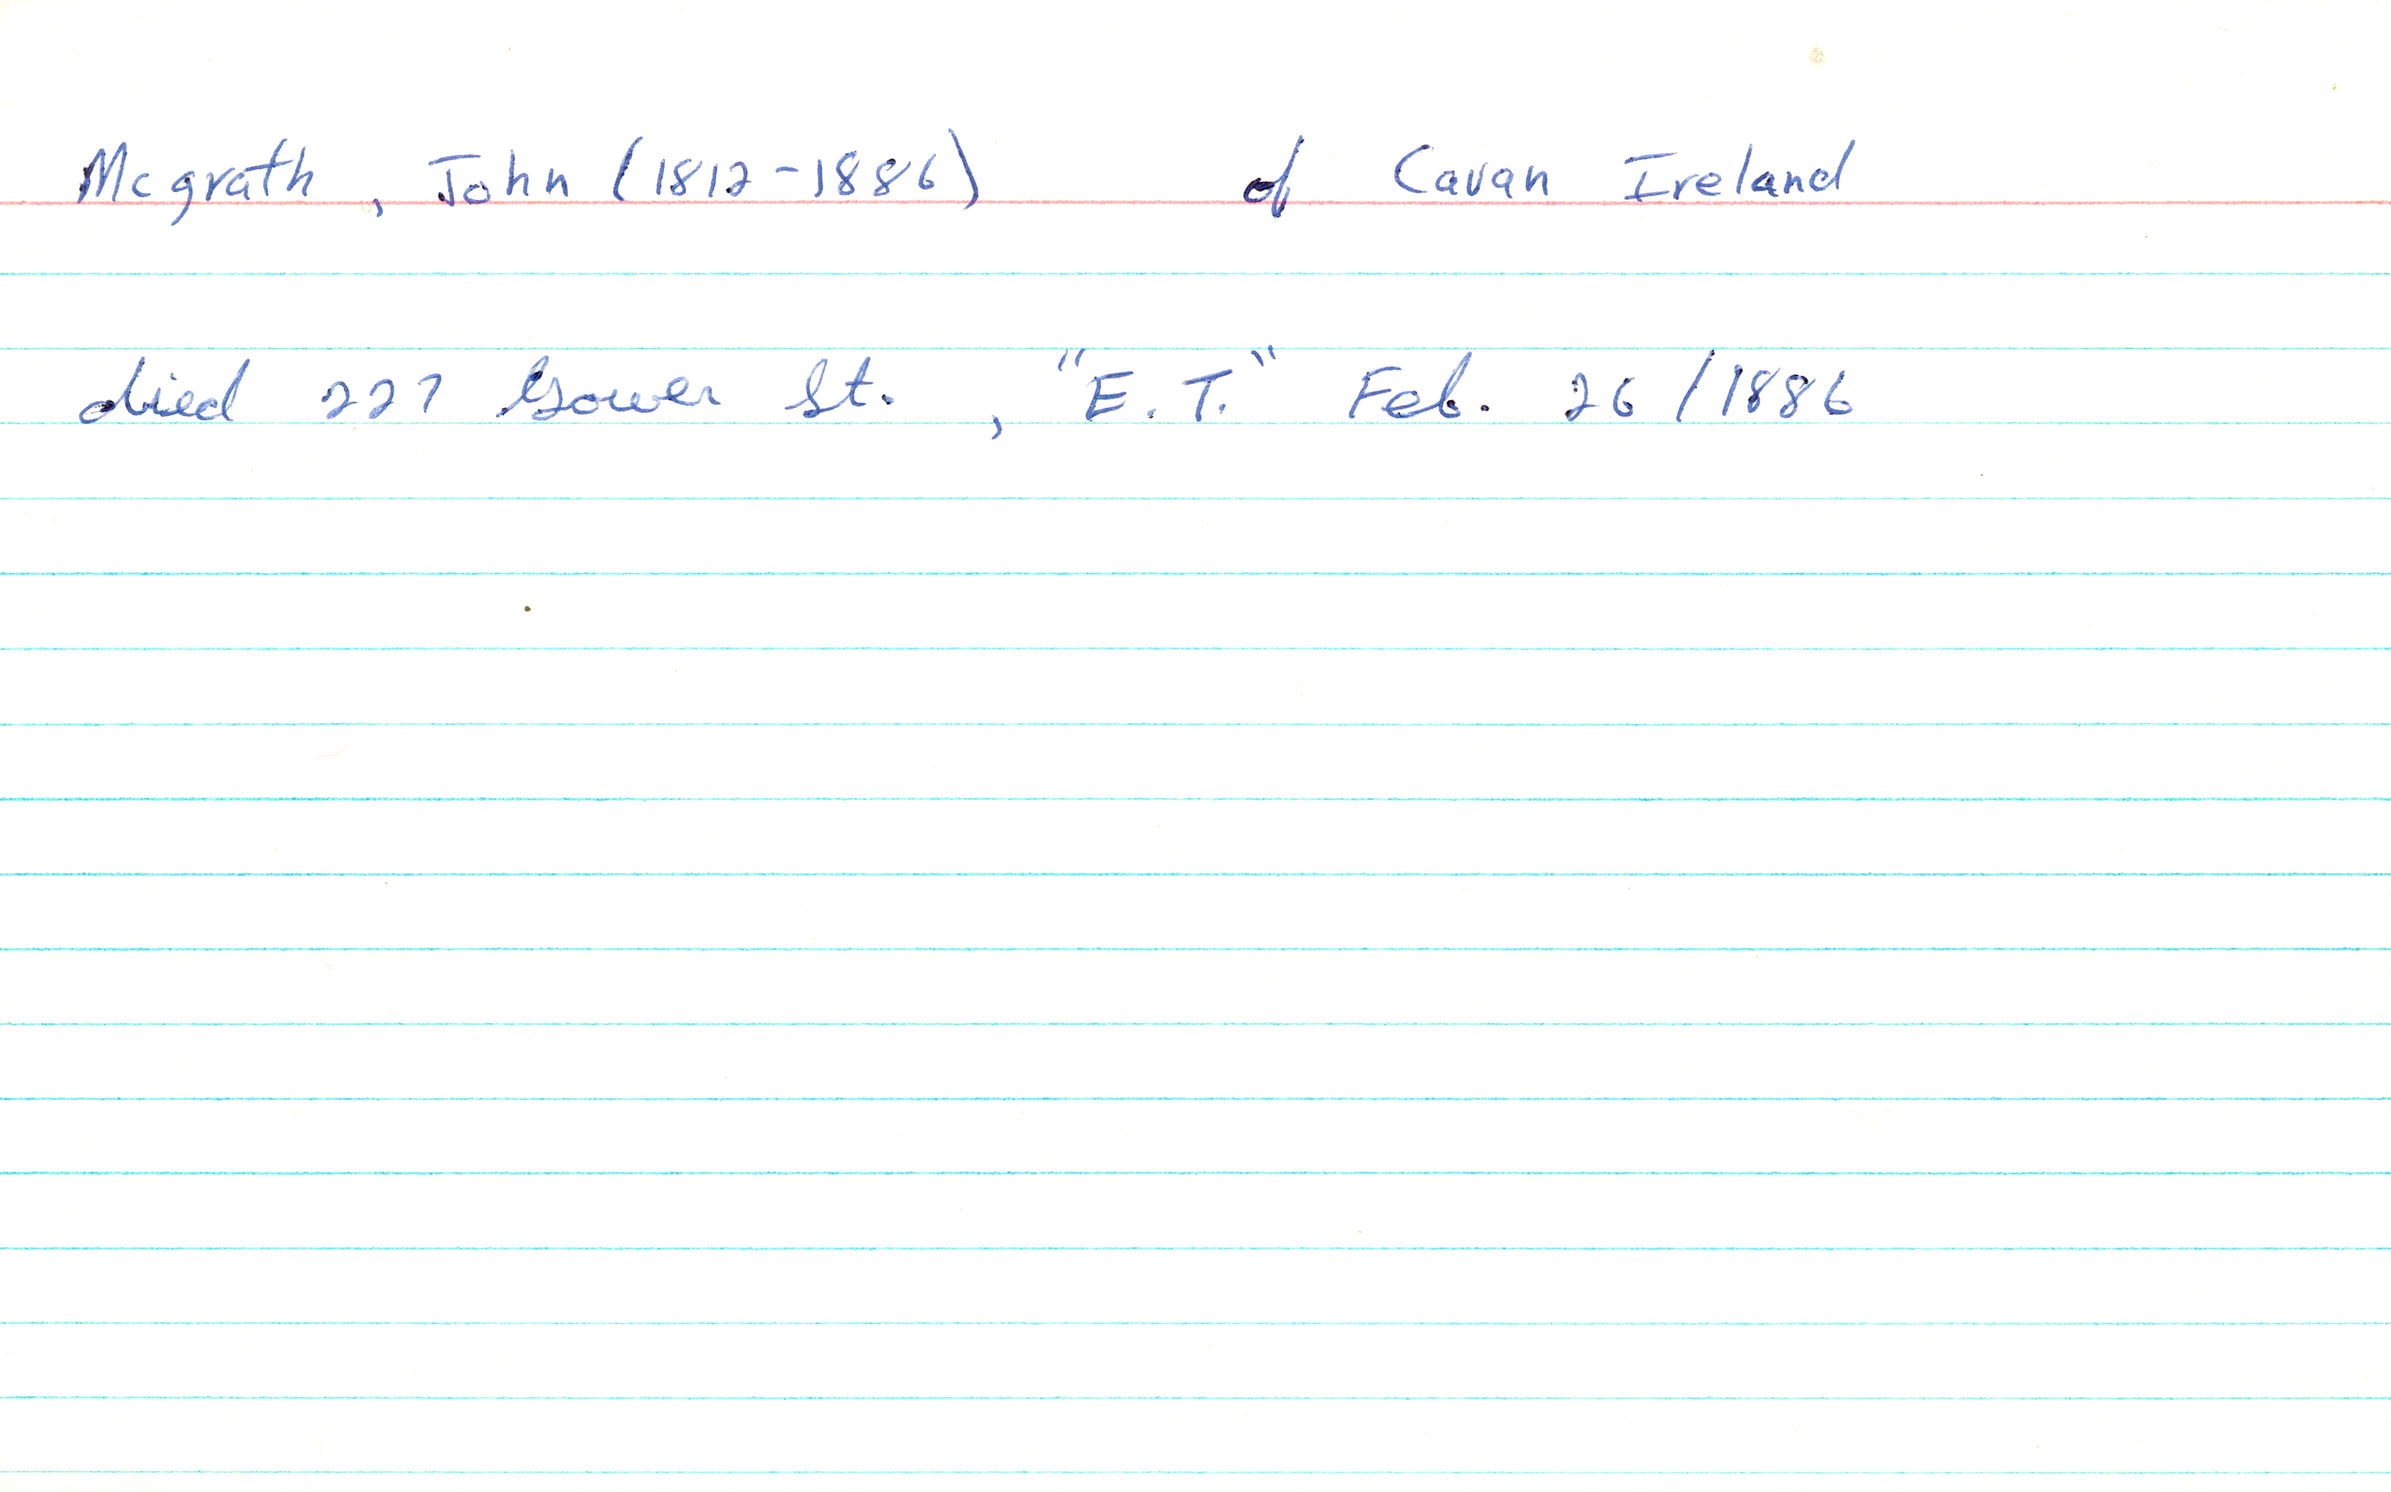 Mcgrath, John (1812-1886) of Cavan Ireland
died 227 Gower St., "E.T." Feb. 26/1886